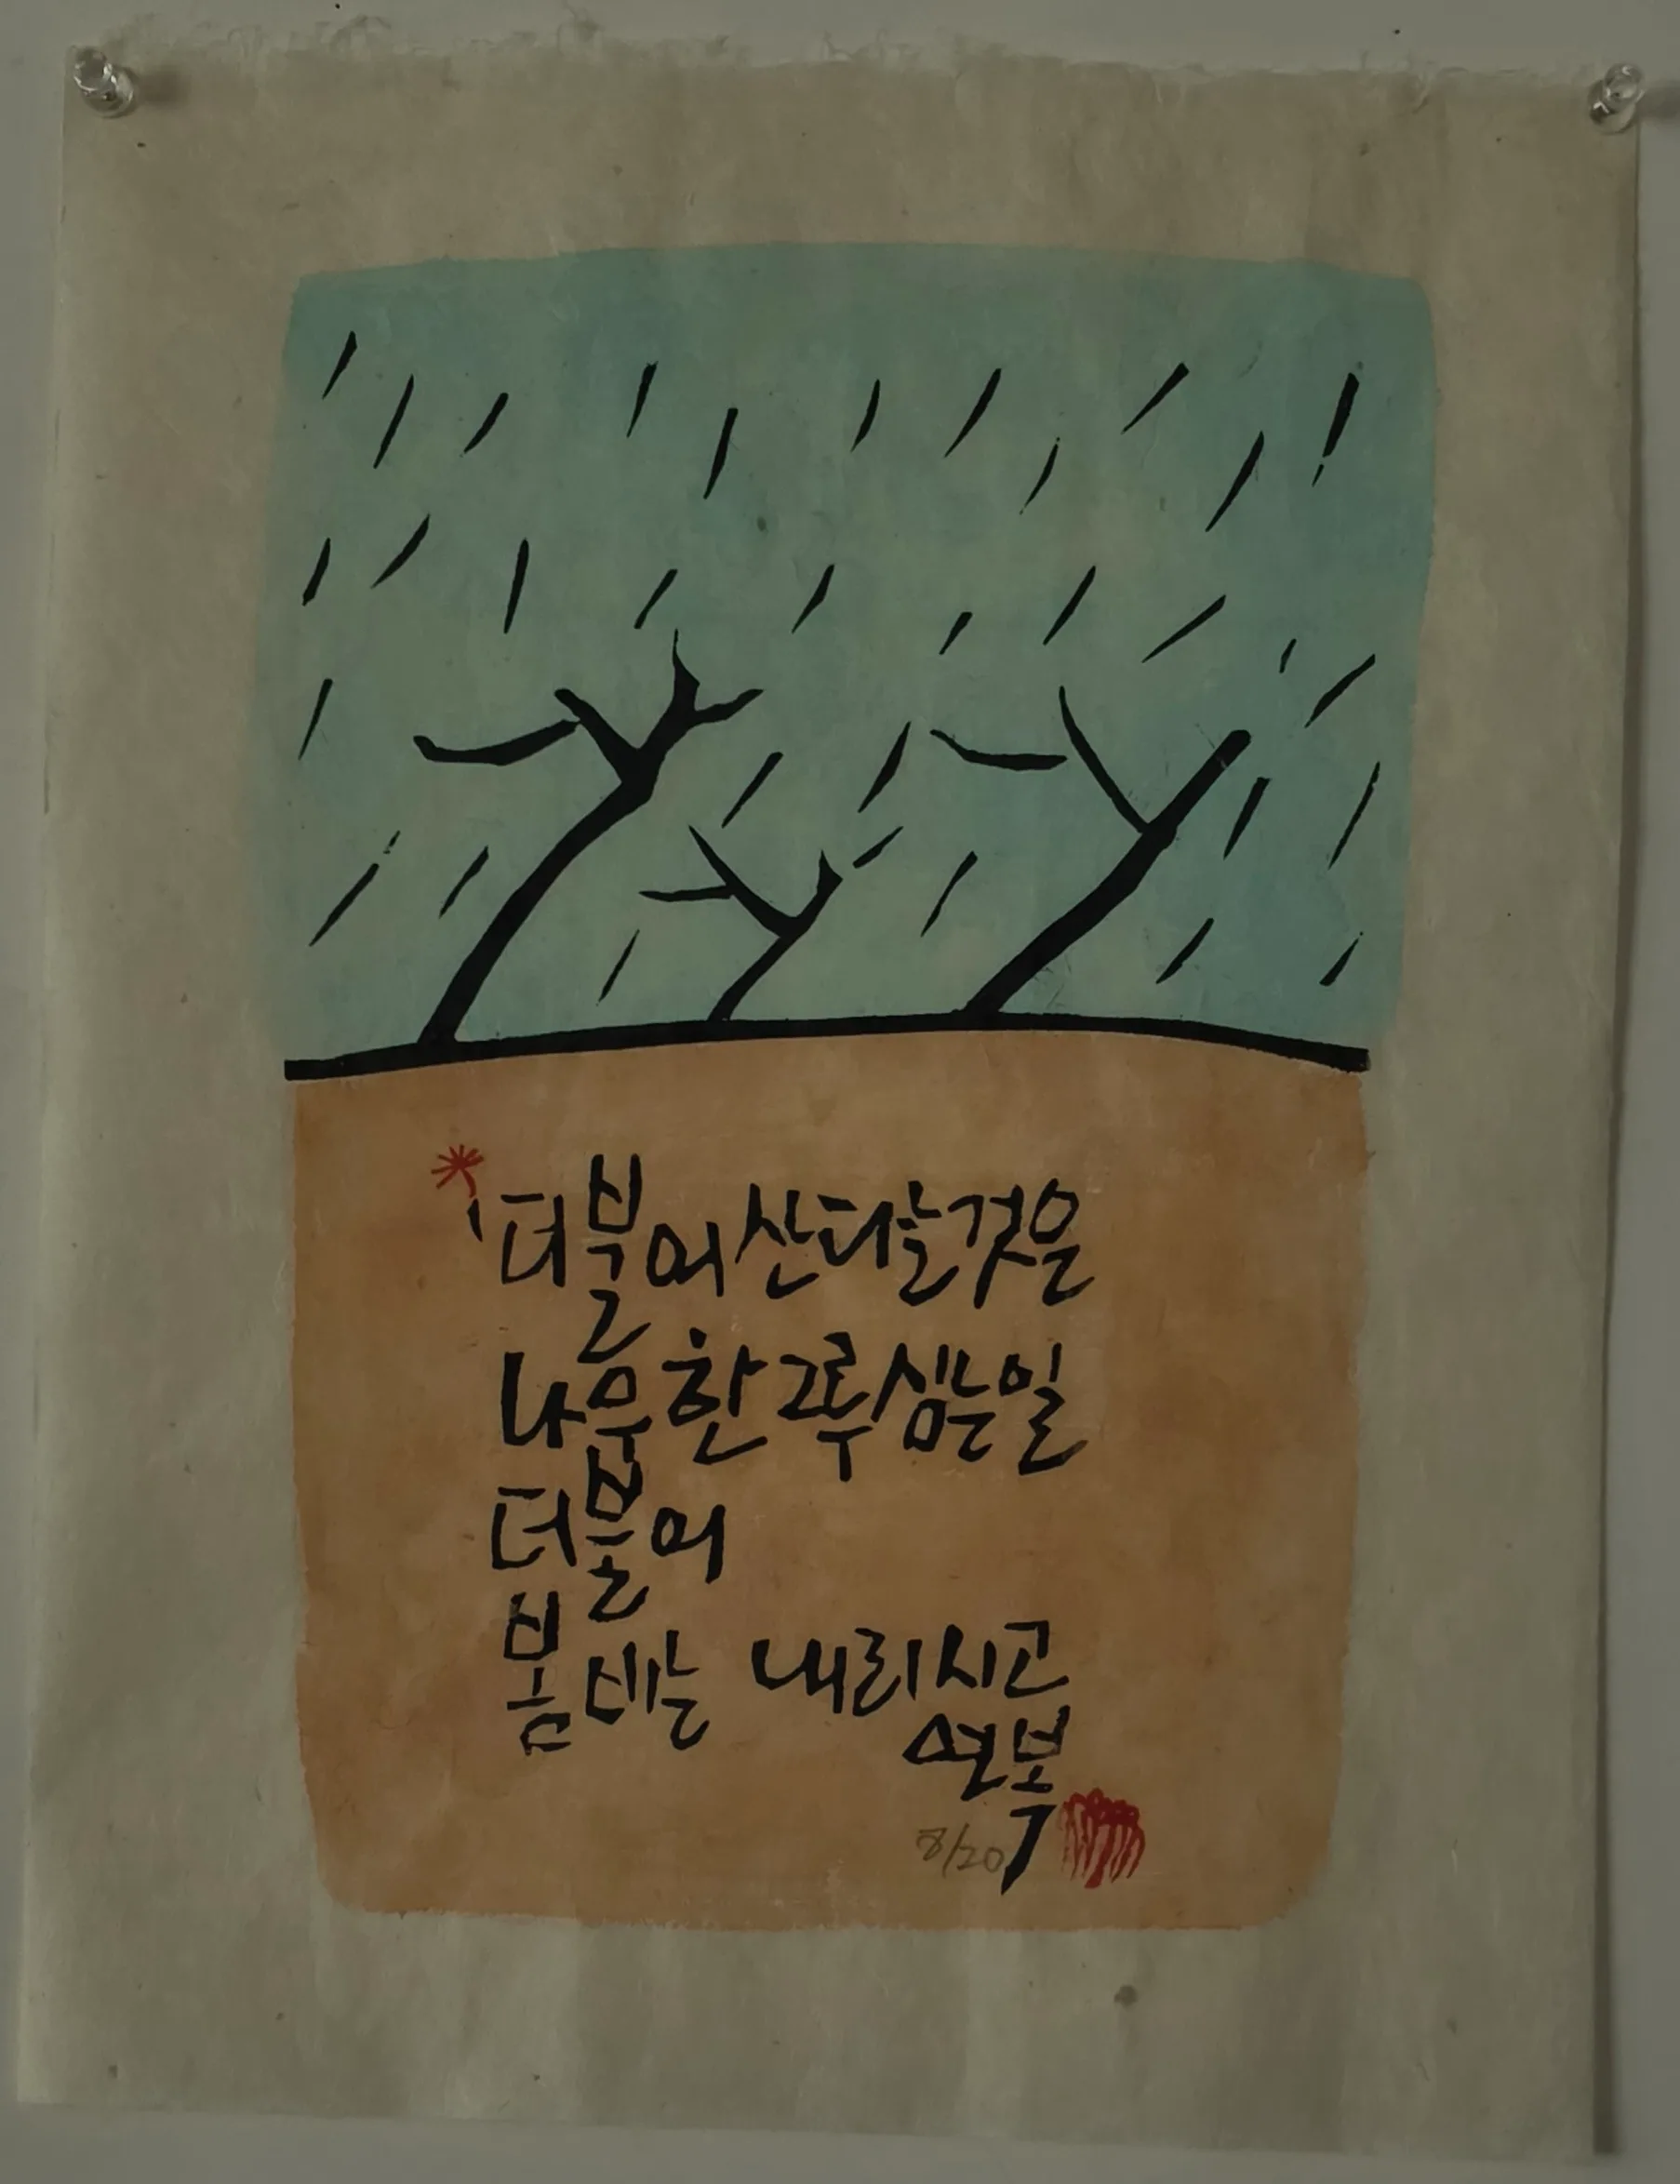 더불어 산다는 것은
나무 한 그루 심는 일
더불어
봄비는 내리시고
연복
8/20